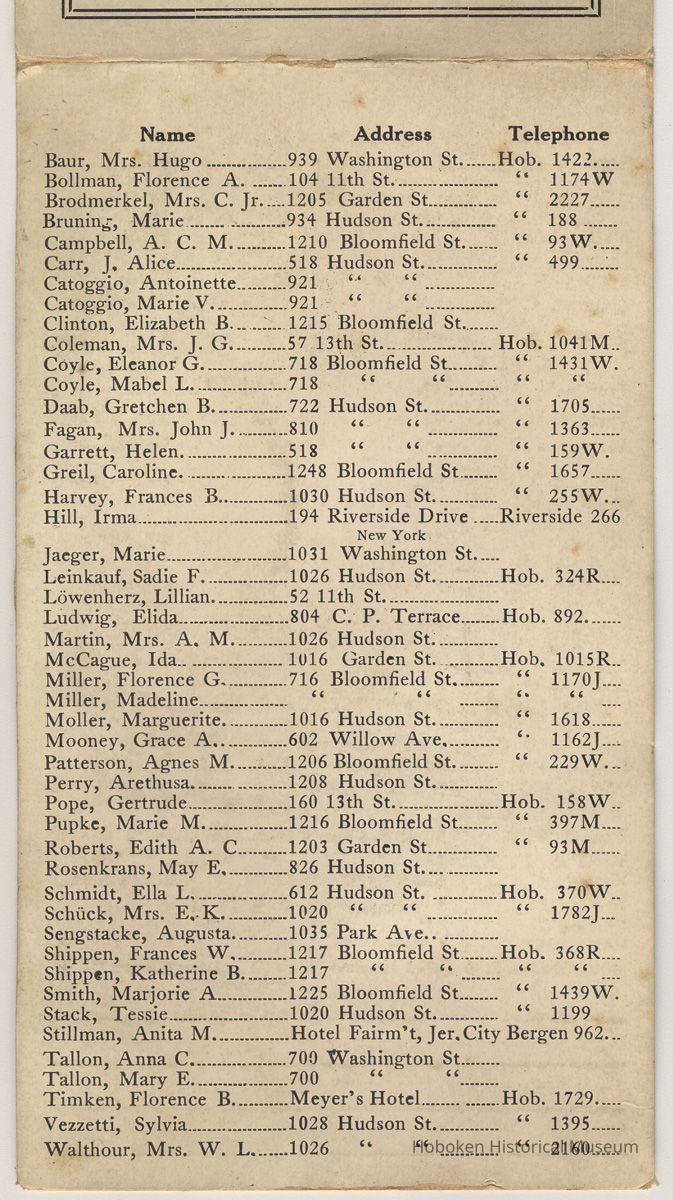 Name Address Telephone
Baur, Mrs. Hugo ................939 Washington St.......Hob. 1422.....
Bollman, Florence A. .......104 11th St..................... “ 1174W
Brodmerkel, Mrs. C. Jr....1205 Garden St.............. “ 2227......
Bruning, Marie ....... ..........934 Hudson St............... “ 188 .......
Campbell, A. C. M...........1210 Bloomfield St....... “ 93W.....
Carr, J. Alice......................518 Hudson St............... “ 499........
Catoggio, Antoinette..........921 “ “ ..............
Catoggio, Marie V..............921 “ “ ..............
Clinton, Elizabeth B..........1215 Bloomfield St.......
Coleman, Mrs. J. G...........57 13th St...................... Hob. 1041M..
Coyle, Eleanor G.................718 Bloomfield St.......... “ 1431W.
Coyle, Mabel L...................718 “ “.......... “ “
Daab, Gretchen B...............722 Hudson St.............. “ 1705......
Fagan, Mrs. John J...........810 “ “ .............. “ 1363......
Garrett, Helen.....................518 “ “ .............. “ 159W.
Greil, Caroline. ...................1248 Bloomfield St........ “ 1657......
Harvey, Frances B.............1030 Hudson St............ “ 255W...
Hill, Irma............................194 Riverside Drive .....Riverside 266
New York
Jaeger, Marie.......................1031 Washington St.....
Leinkauf, Sadie F................1026 Hudson St............Hob. 324R....
Löwenherz, Lillian..............52 11th St......................
Ludwig, Elida.....................804 C. P. Terrace........Hob. 892.......
Martin, Mrs. A. M............1026 Hudson St............
McCague, Ida.. .................1016 Garden St. ..........Hob. 1015R..
Miller, Florence G.............716 Bloomfield St......... “ 1170J....
Miller, Madeline................. “ “ ....... “ “ ....
Moller, Marguerite..............1016 Hudson St............ “ 1618......
Mooney, Grace A...............602 Willow Ave........... “ 1162J....
Patterson, Agnes M...........1206 Bloomfield St........ “ 229W...
Perry, Arethusa........ .........1208 Hudson St............
Pope, Gertrude...................160 13th St....................Hob. 158W..
Pupke, Marie M.................1216 Bloomfield St....... “ 397M....
Roberts, Edith A. C..........1203 Garden St............. “ 93M......
Rosenkrans, May E............826 Hudson St.... .........
Schmidt, Ella L..................612 Hudson St. ............Hob. 370W..
Schück, Mrs. E. K.............1020 “ “ .............. “ 1782J...
Sengstacke, Augusta..........1035 Park Ave.. ...........
Shippen, Frances W...........1217 Bloomfield St.......Hob. 368R....
Shippen, Katherine B.........1217 “ “ ........ “ “ ....
Smith, Marjorie A..............1225 Bloomfield St....... “ 1439W.
Stack, Tessie.......................1020 Hudson St............ “ 1199
Stillman, Anita M...............Hotel Fairm't, Jer. City Bergen 962...
Tallon, Anna C...................700 Washington St.......
Tallon, Mary E...................700 “ “.......
Timken, Florence B...........Meyer's Hotel........ .......Hob. 1729.....
Vezzetti, Sylvia...................1028 Hudson St............ “ 1395......
Walthour, Mrs. W. L.......1026 “ “ ............ “ 2160......
Hoboken Historical Museum